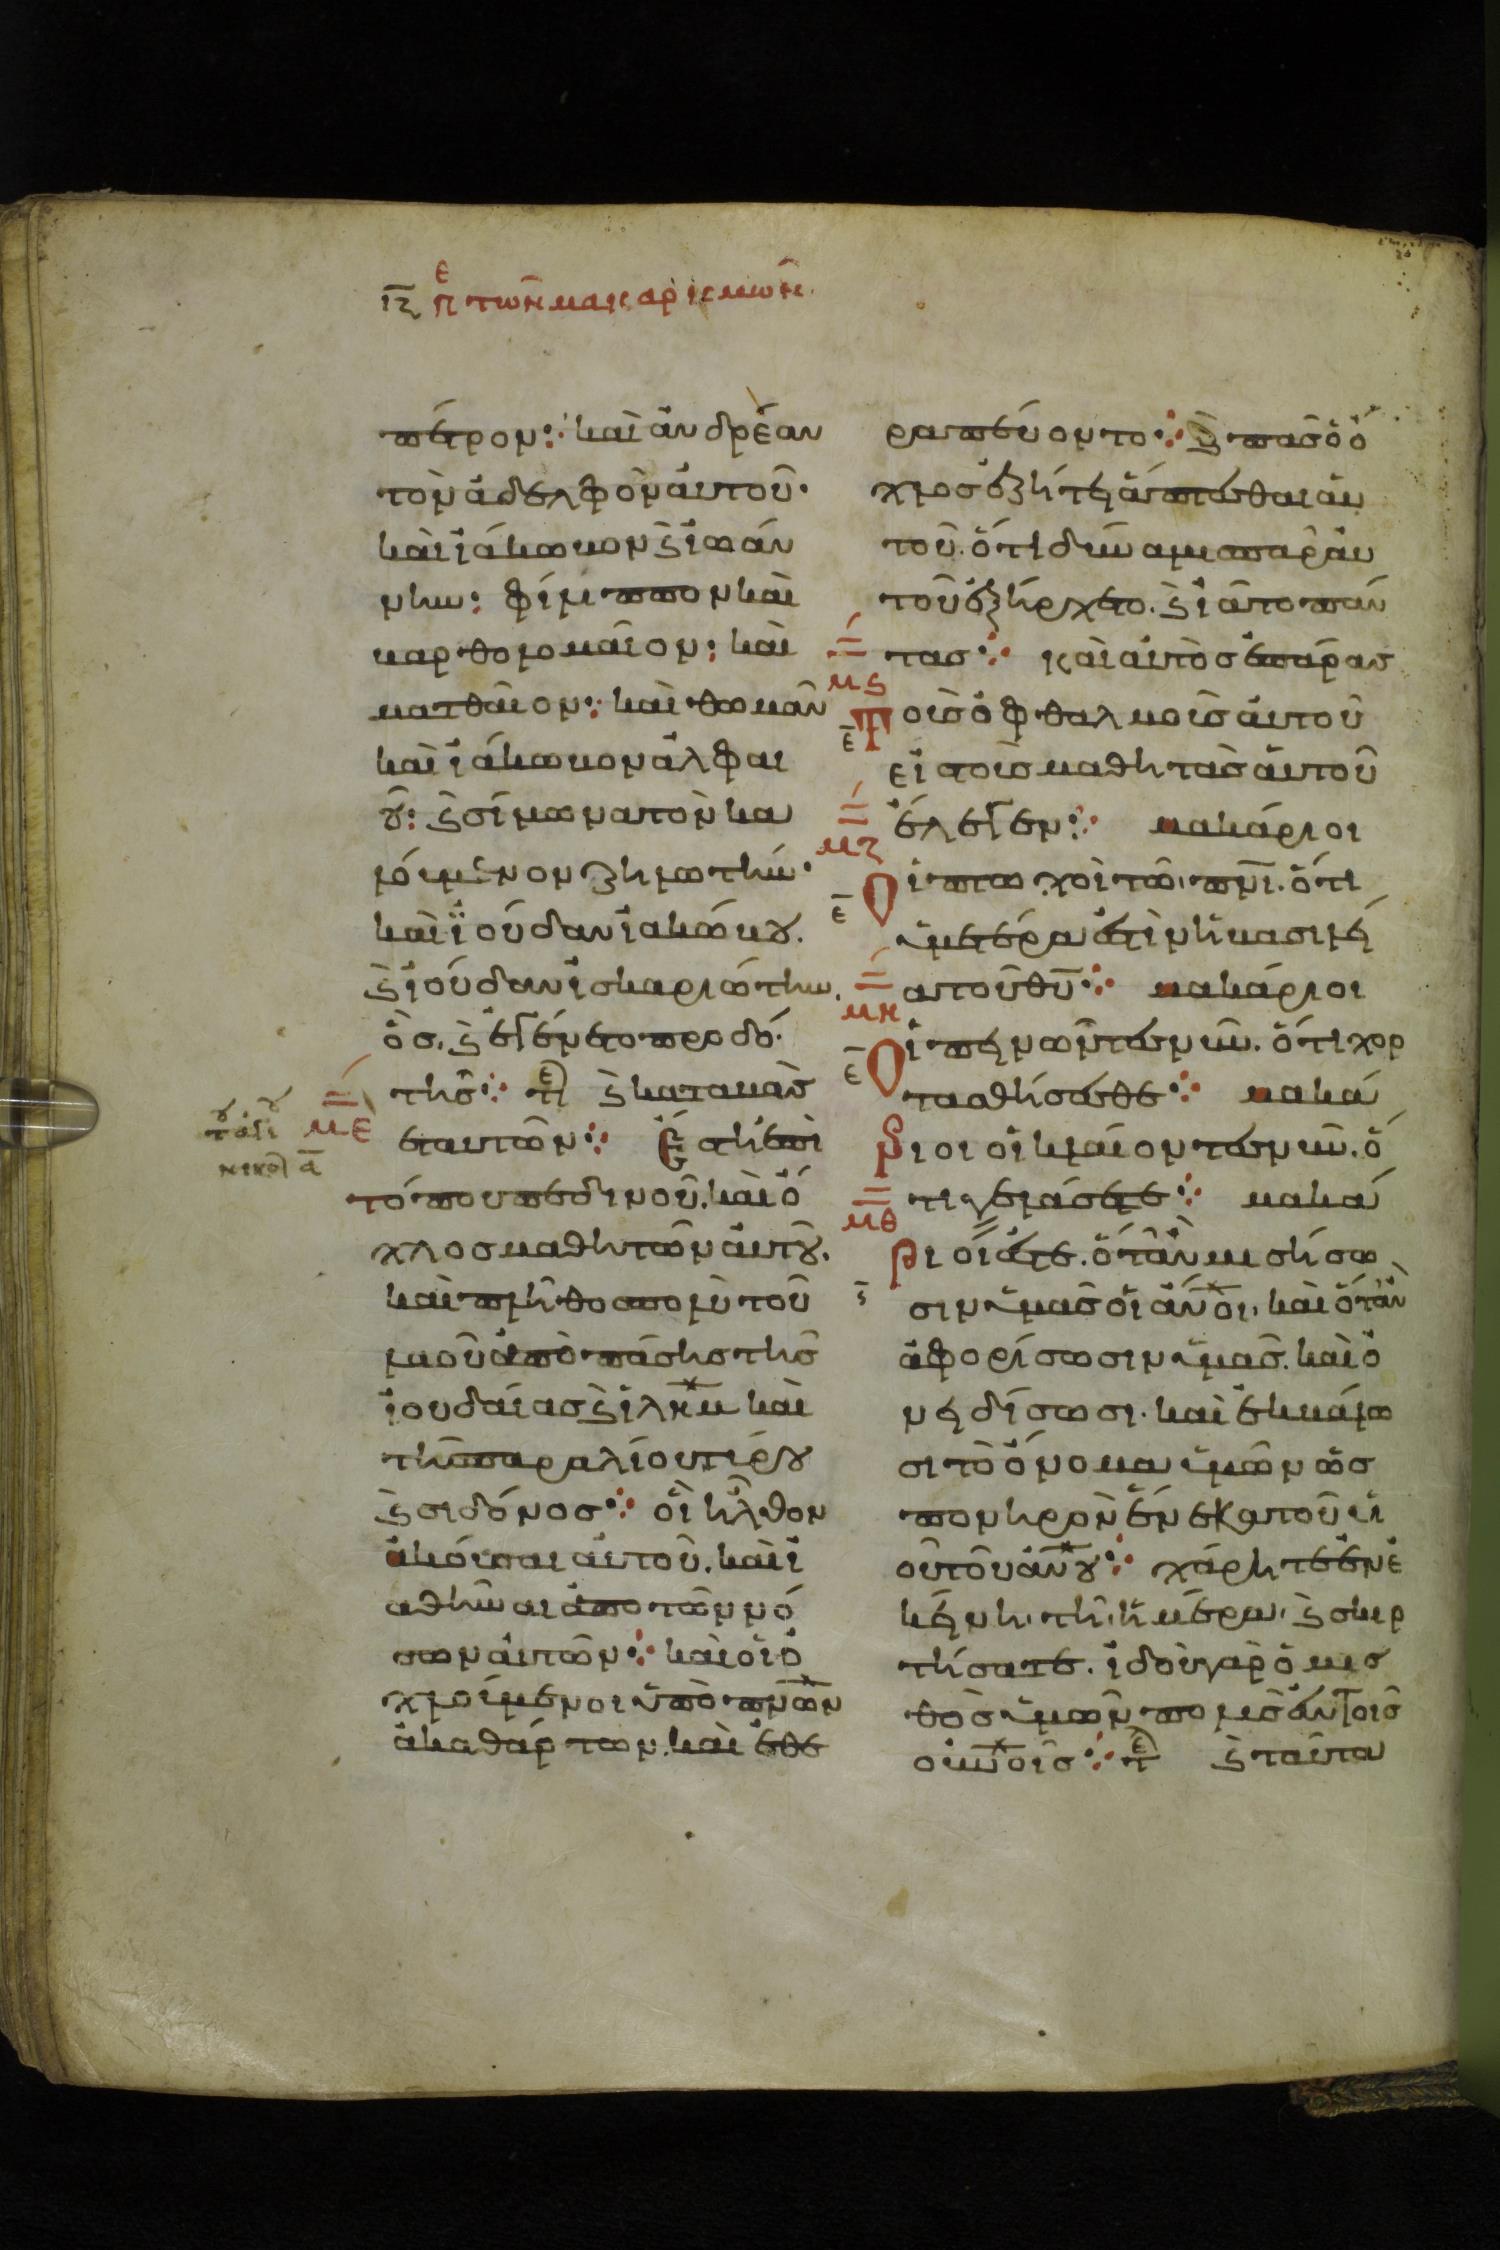 ιζ πε τῶν μακαρισμῶν
πέτρον· καὶ ἀνδρέαν
τὸν ἀδελφὸν αὐτοῦ·
καὶ ἰάκωβον ϗ ἰωάν
νην· φίλιππον καὶ
βαρθολομαῖον· καὶ
ματθαῖον· καὶ θωμᾶν
καὶ ἰάκωβον ἀλφαί
ου· ϗ σίμωνα τὸν κα
λούμενον ζηλωτήν·
καὶ ἰούδαν ἰακώβου.
ϗ ἰούδαν ἰσκαριώτην.
ὃς ϗ ἐγένετο προδό
της· τε ϗ καταβὰς
μετ αὐτῶν· ἔστη ἐπὶ
τόπου πεδινοῦ. καὶ ὄ
χλος μαθητῶν αὐτοῦ.
καὶ πλῆθος πολὺ τοῦ
λαοῦ ἀπὸ πάσης τῆς
ἰουδαίας ϗ ἰλημ καὶ
τῆς παραλίου τύρου
ϗ σιδόνος· οἳ ἦλθον
ἀκοῦσαι αὐτοῦ. καὶ ἰ
αθῆναι ἀπὸ τῶν νό
σων αὐτῶν· καὶ οἱ ὀ
χλούμενοι ὑπὸ πνων
ἀκαθάρτων. καὶ ἐθε
με
ραπεύοντο· ϗ πᾶς ὁ ὄ
χλος ἐζήτει ἅπτεσθαι αὐ
τοῦ. ὅτι δύναμις παρ αὐ
τοῦ ἐξήρχετο. ϗ ἰᾶτο πάν
τας· καὶ αὐτὸς ἐπάρας
τοὺς ὀφθαλμοὺς αὐτοῦ
εἰς τοὺς μαθητὰς αὐτοῦ
ἔλεγεν· μακάριοι
οἱ πτωχοὶ τῶ πνι. ὅτι
ὑμετέρα ἐστὶν ἡ βασιλεί
α τοῦ θυ· μακάριοι
οἱ πεινῶντες νῦν. ὅτι χορ
τασθήσεσθε· μακά
ριοι οἱ κλαίοντες νῦν. ὅ
τι γελάσετε· μακά
ριοί ἐστε. ὅταν μισήσω
σιν ὑμᾶς οἱ ανοι. καὶ ὅταν
ἀφορίσωσιν ὑμᾶς. καὶ ὀ
νειδίσωσι. καὶ ἐκβάλω
σι τὸ ὄνομα ὑμῶν ὡς
πονηρὸν ἕνεκα τοῦ υἱ
οῦ τοῦ ανου· χάρητε ἐν ἐ
κείνη τῆ ἡμέρα. ϗ σκιρ
τήσατε. ἰδοὺ γὰρ ὁ μισ
θὸς ὑμῶν πολὺς ἐν τοῖς
ουνοις· τε ϗ ταῦτα
μς
μζ
μη
μθ